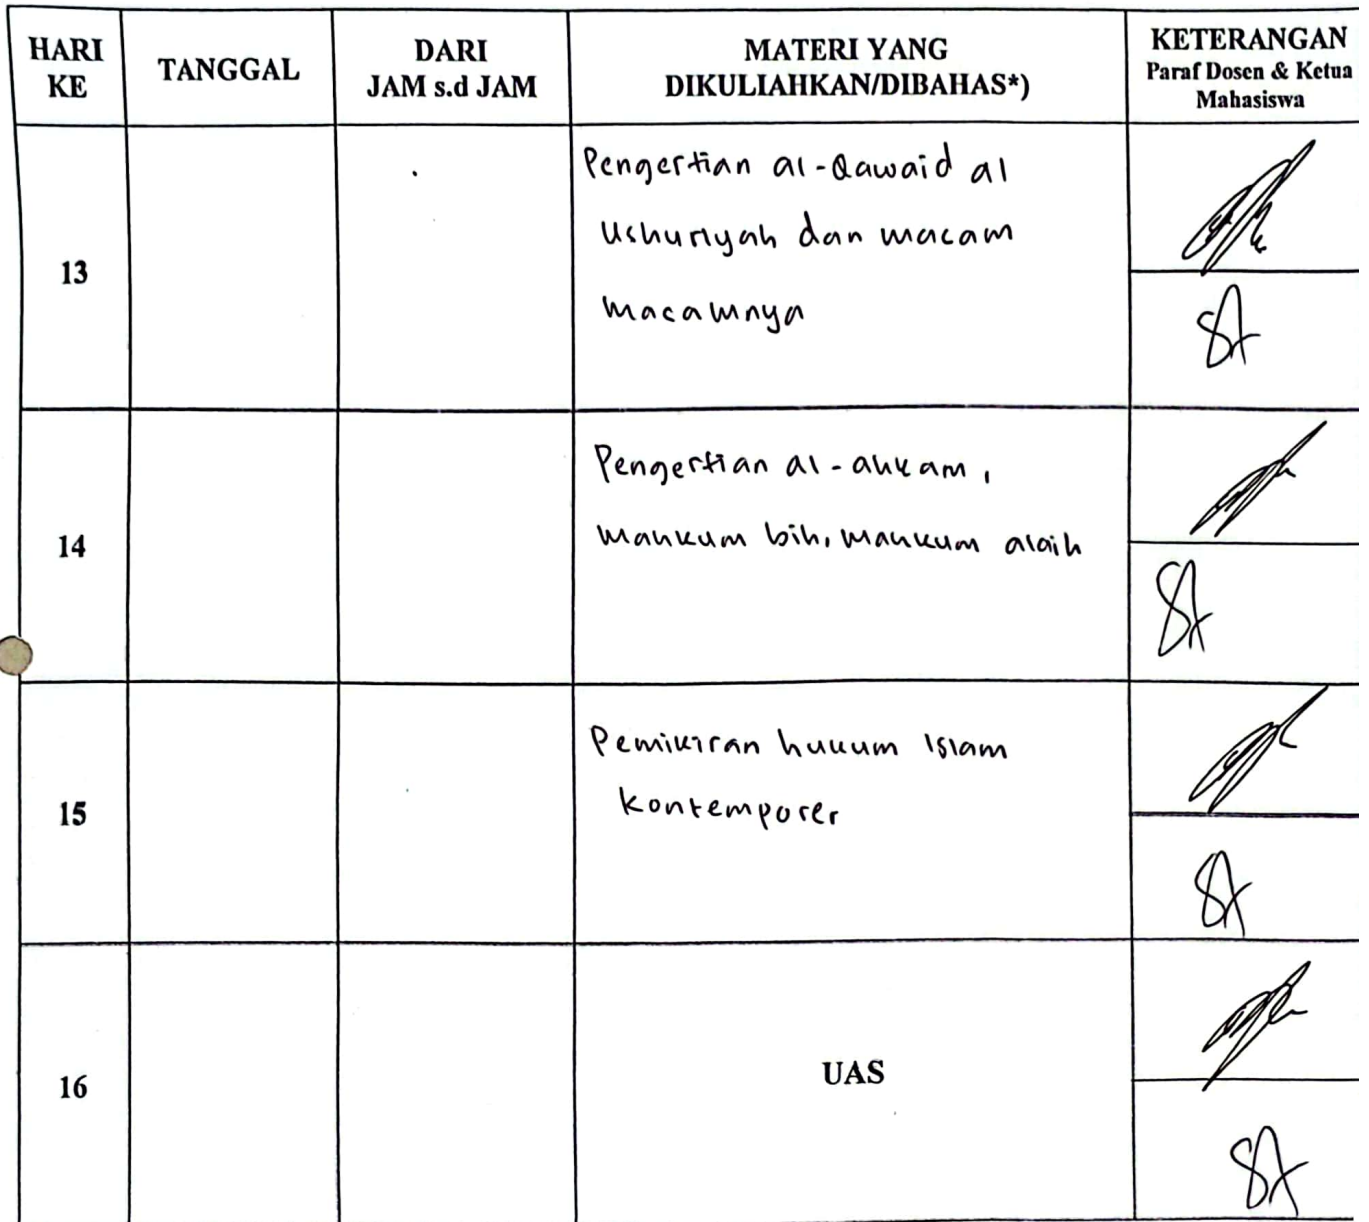 HARI KE
TANGGAL
DARI
JAM s.d JAM
MATERI YANG
DIKULIAHKAN/DIBAHAS*)
KETERANGAN
Paraf Dosen & Ketua
Mahasiswa
13
Pengertian al-Qawaid al
Ushuriyah dan macam
macamnya
14
Pengertian al-ahkam,
mahkum bih, mahkum alaih
15
Pemikiran hukum Islam
kontemporer
16
UAS